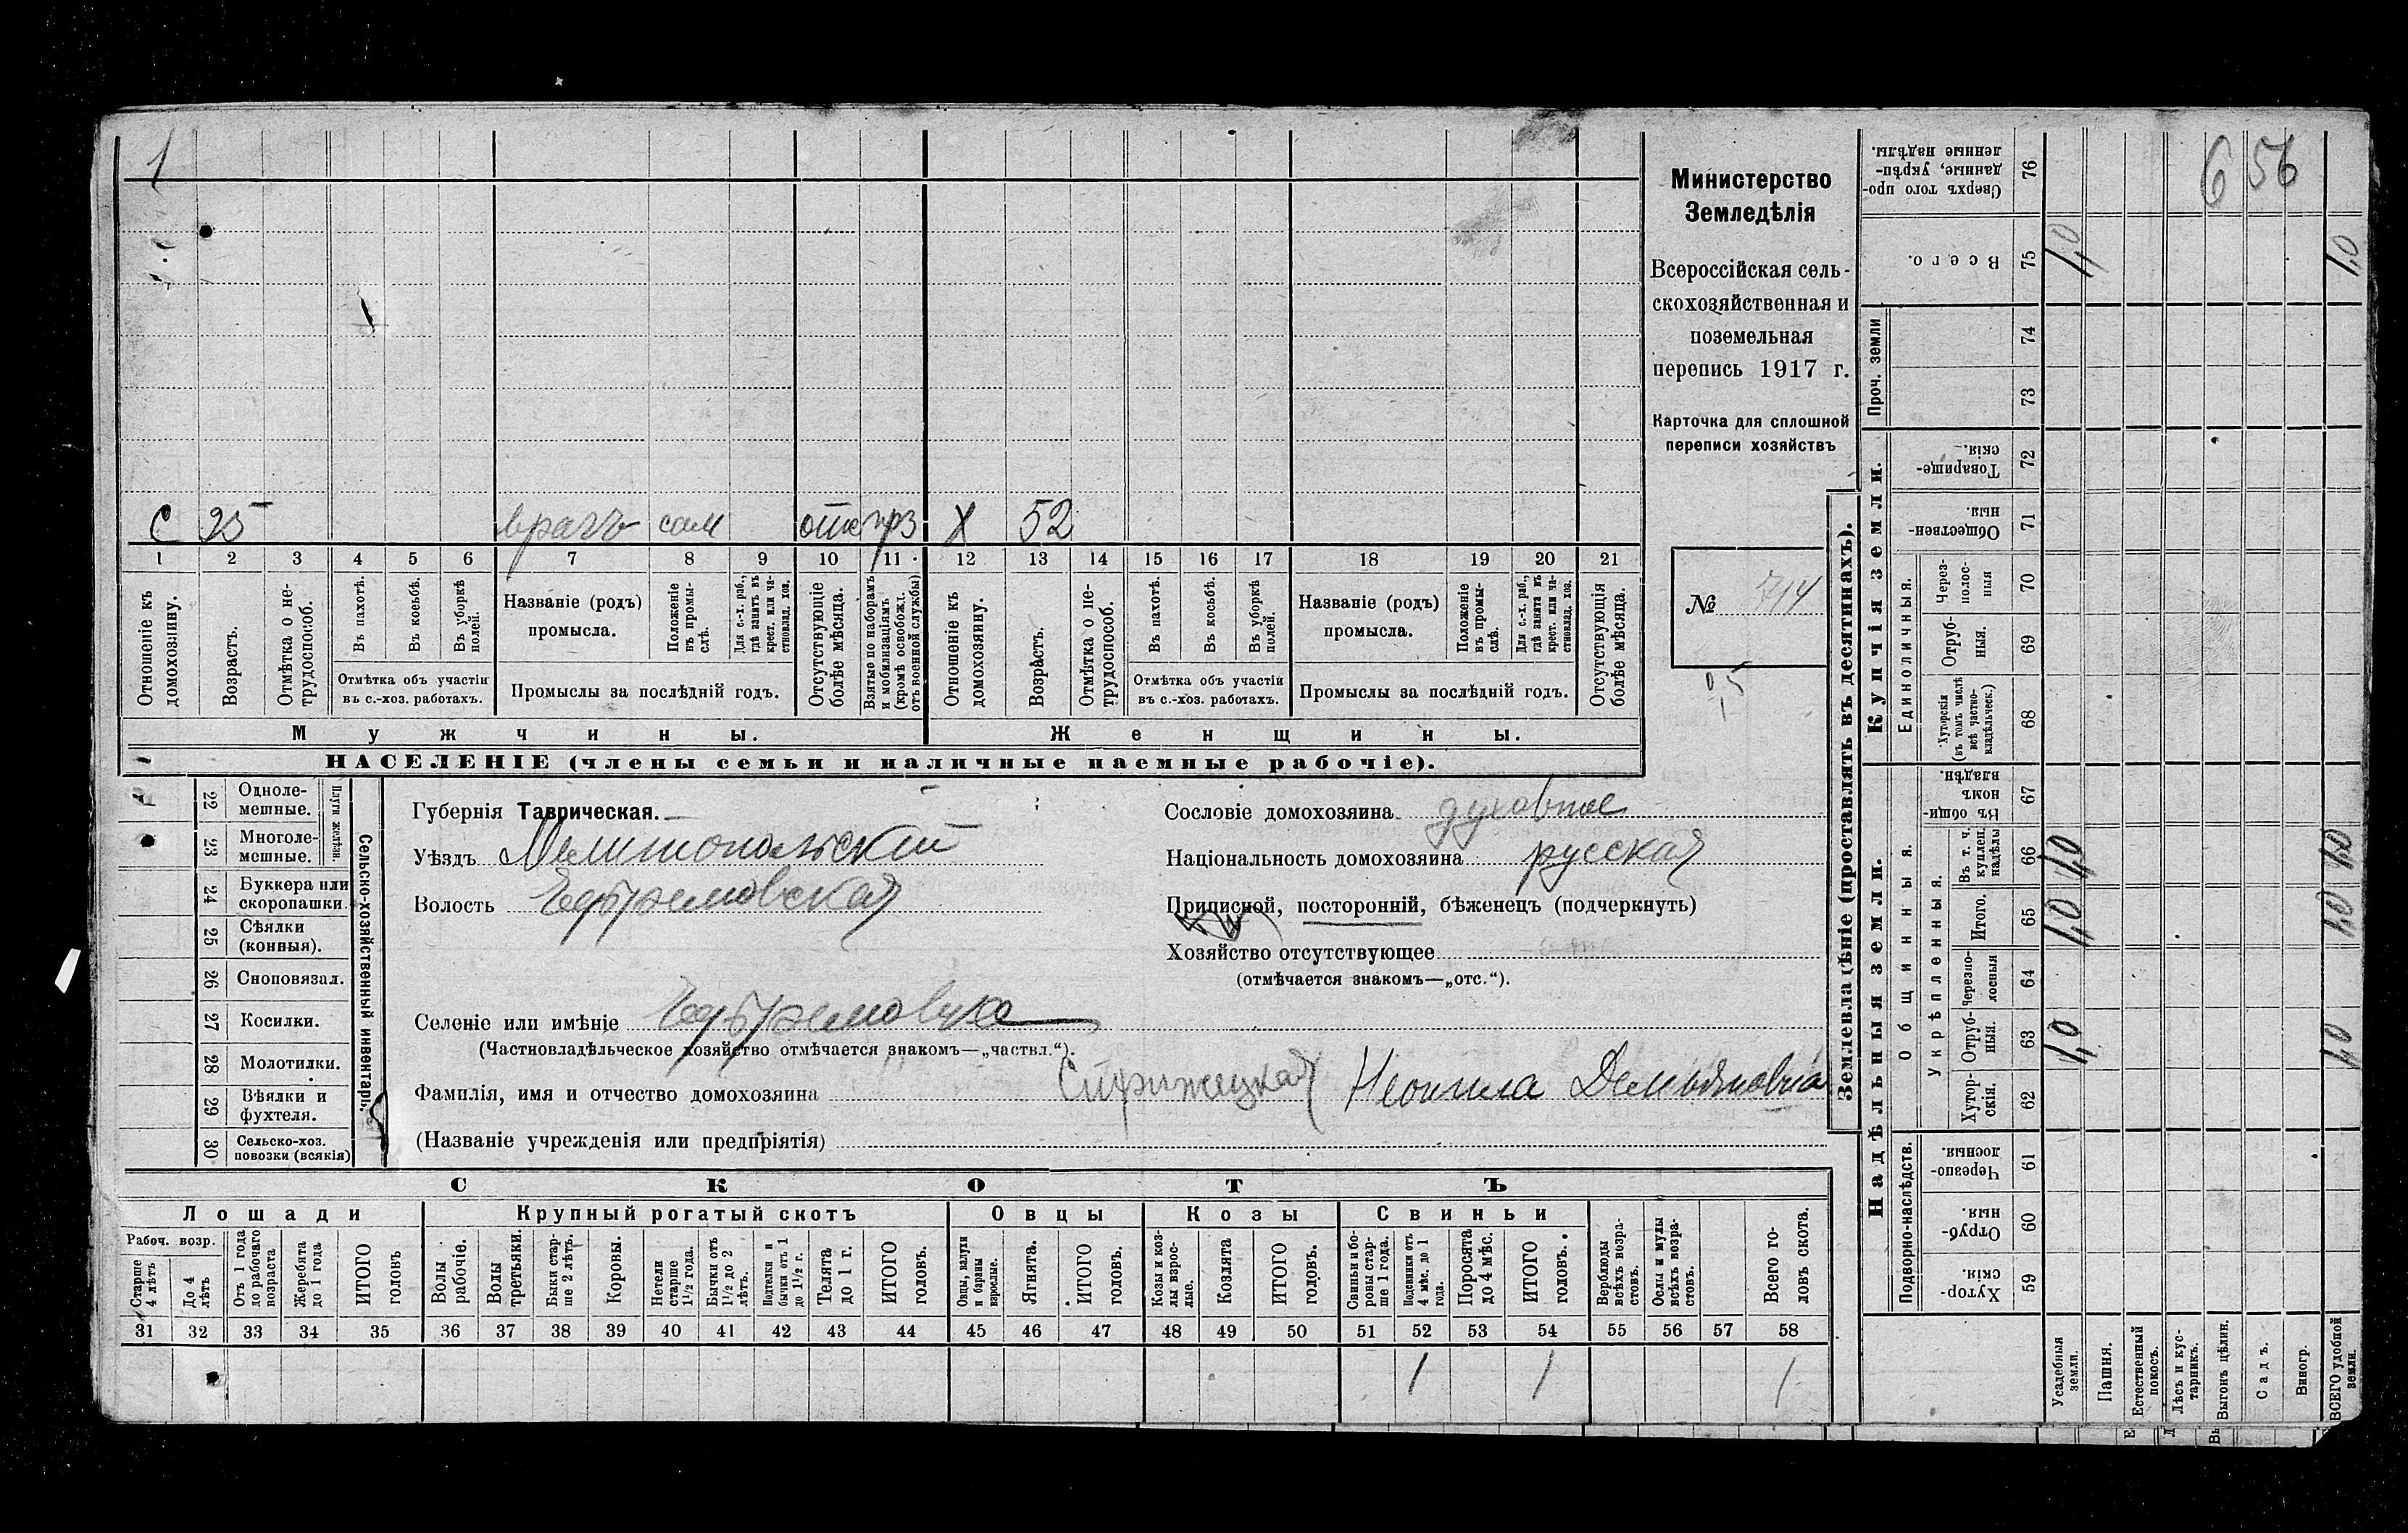 1
С 25 врачъ сам отс прз Х 52
1 2 3 4 5 6 7 8 9 10 11 12 13 14 15 16 17 18 19 20 21
Отношеніе къ домохозяину.
Возрастъ.
Отмѣтка о нетрудоспособ.
Въ пахотѣ.
Въ косьбѣ.
Въ уборкѣ полей.
Отмѣтка объ участіи
въ с.-хоз. работахъ.
Названіе (родъ)
промысла.
Положеніе въ промыслѣ.
Для с.-х. раб., гдѣ занятъ въ крест. или частновлад. хоз.
Промыслы за послѣдній годъ.
Отсутствующіе болѣе мѣсяца.
Взятые по наборамъ и мобилизаціямъ (кромѣ освобожд. отъ военной службы)
Отношеніе къ домохозяину.
Возрастъ.
Отмѣтка о нетрудоспособ.
Въ пахотѣ.
Въ косьбѣ.
Въ уборкѣ полей.
Отмѣтка объ участіи
въ с.-хоз. работахъ.
Названіе (родъ)
промысла.
Положеніе въ промыслѣ.
Для с.-х. раб., гдѣ занята въ крест. или частновлад. хоз.
Промыслы за послѣдній годъ.
Отсутствующія болѣе мѣсяца.
Мужчины. Женщины.
НАСЕЛЕНІЕ (члены семьи и наличные наемные рабочіе).
Министерство
Земледѣлія
Всероссійская сель-
скохозяйственная и
поземельная
перепись 1917 г.
Карточка для сплошной
переписи хозяйствъ
№ 714
Сельско-хозяйственный инвентарь.
Плуги желѣзн.
22 Однолемешные.
23 Многолемешные.
24 Буккера или скоропашки.
25 Сѣялки (конныя).
26 Сноповязал.
27 Косилки.
28 Молотилки.
29 Вѣялки и фухтеля.
30 Сельско-хоз. повозки (всякія)
Губернія Таврическая.
Уѣздъ Мелитопольскій
Волость Ефремовская
Селеніе или имѣніе Ефремовка
(Частновладѣльческое хозяйство отмѣчается знакомъ—„частвл.“).
Сословіе домохозяина духовное
Національность домохозяина русская
Приписной, посторонній, бѣженецъ (подчеркнуть)
Хозяйство отсутствующее
(отмѣчается знакомъ—„отс.“).
Фамилія, имя и отчество домохозяина Стрижецкая Неонила Демьяновна
(Названіе учрежденія или предпріятія)
СКОТЪ
Лошади Крупный рогатый скотъ Овцы Козы Свиньи
Рабоч. возр.
Старше 4 лѣтъ
До 4 лѣтъ
Отъ 1 года до рабочаго возраста
Жеребята до 1 года
ИТОГО головъ
Волы рабочіе.
Волы третьяки.
Быки старше 2 лѣтъ.
Коровы.
Нетели старше 1½ года.
Бычки отъ 1½ до 2 лѣтъ.
Подтелки и бычки отъ 1 до 1½ г.
Телята до 1 г.
ИТОГО головъ.
Овцы, валухи и бараны взрослые.
Ягнята.
ИТОГО головъ.
Козы и козлы взрослые.
Козлята
ИТОГО головъ.
Свиньи и боровы старше 1 года.
Подсвинки отъ 4 мѣс. до 1 года.
Поросята до 4 мѣс.
ИТОГО головъ.
Верблюды всѣхъ возрастовъ.
Ослы и мулы всѣхъ возрастовъ.
Всего головъ скота.
31 32 33 34 35 36 37 38 39 40 41 42 43 44 45 46 47 48 49 50 51 52 53 54 55 56 57 58
1 1 1
Землевладѣніе (проставлять въ десятинахъ).
Надѣльныя земли. Купчія земли. Проч. земли
Подворно-наслѣдств.
Общинныя.
Укрѣпленныя.
Единоличныя.
Сверхъ того проданные, укрѣпленные надѣлы. 76 6 56
Всего. 75 1,0 1,0
74
73
Товарищескія. 72
Общественныя. 71
Черезполосныя 70
Отрубныя. 69
Хуторскія (въ томъ числѣ всѣ частновладѣльческ.) 68
Въ общинномъ владѣн. 67
Въ т. ч. куплен. надѣлы 66 1,0 1,0
Итого. 65 1,0 1,0
Черезполосныя 64
Отрубныя. 63 1,0 1,0
Хуторскія. 62
Черезполосныя. 61
Отрубныя. 60
Хуторскія. 59
Усадебныя земли.
Пашня.
Естественный покосъ.
Лѣсъ и кустарникъ.
Выгонъ цѣлин.
Садъ.
Виногр.
ВСЕГО удобной земли.